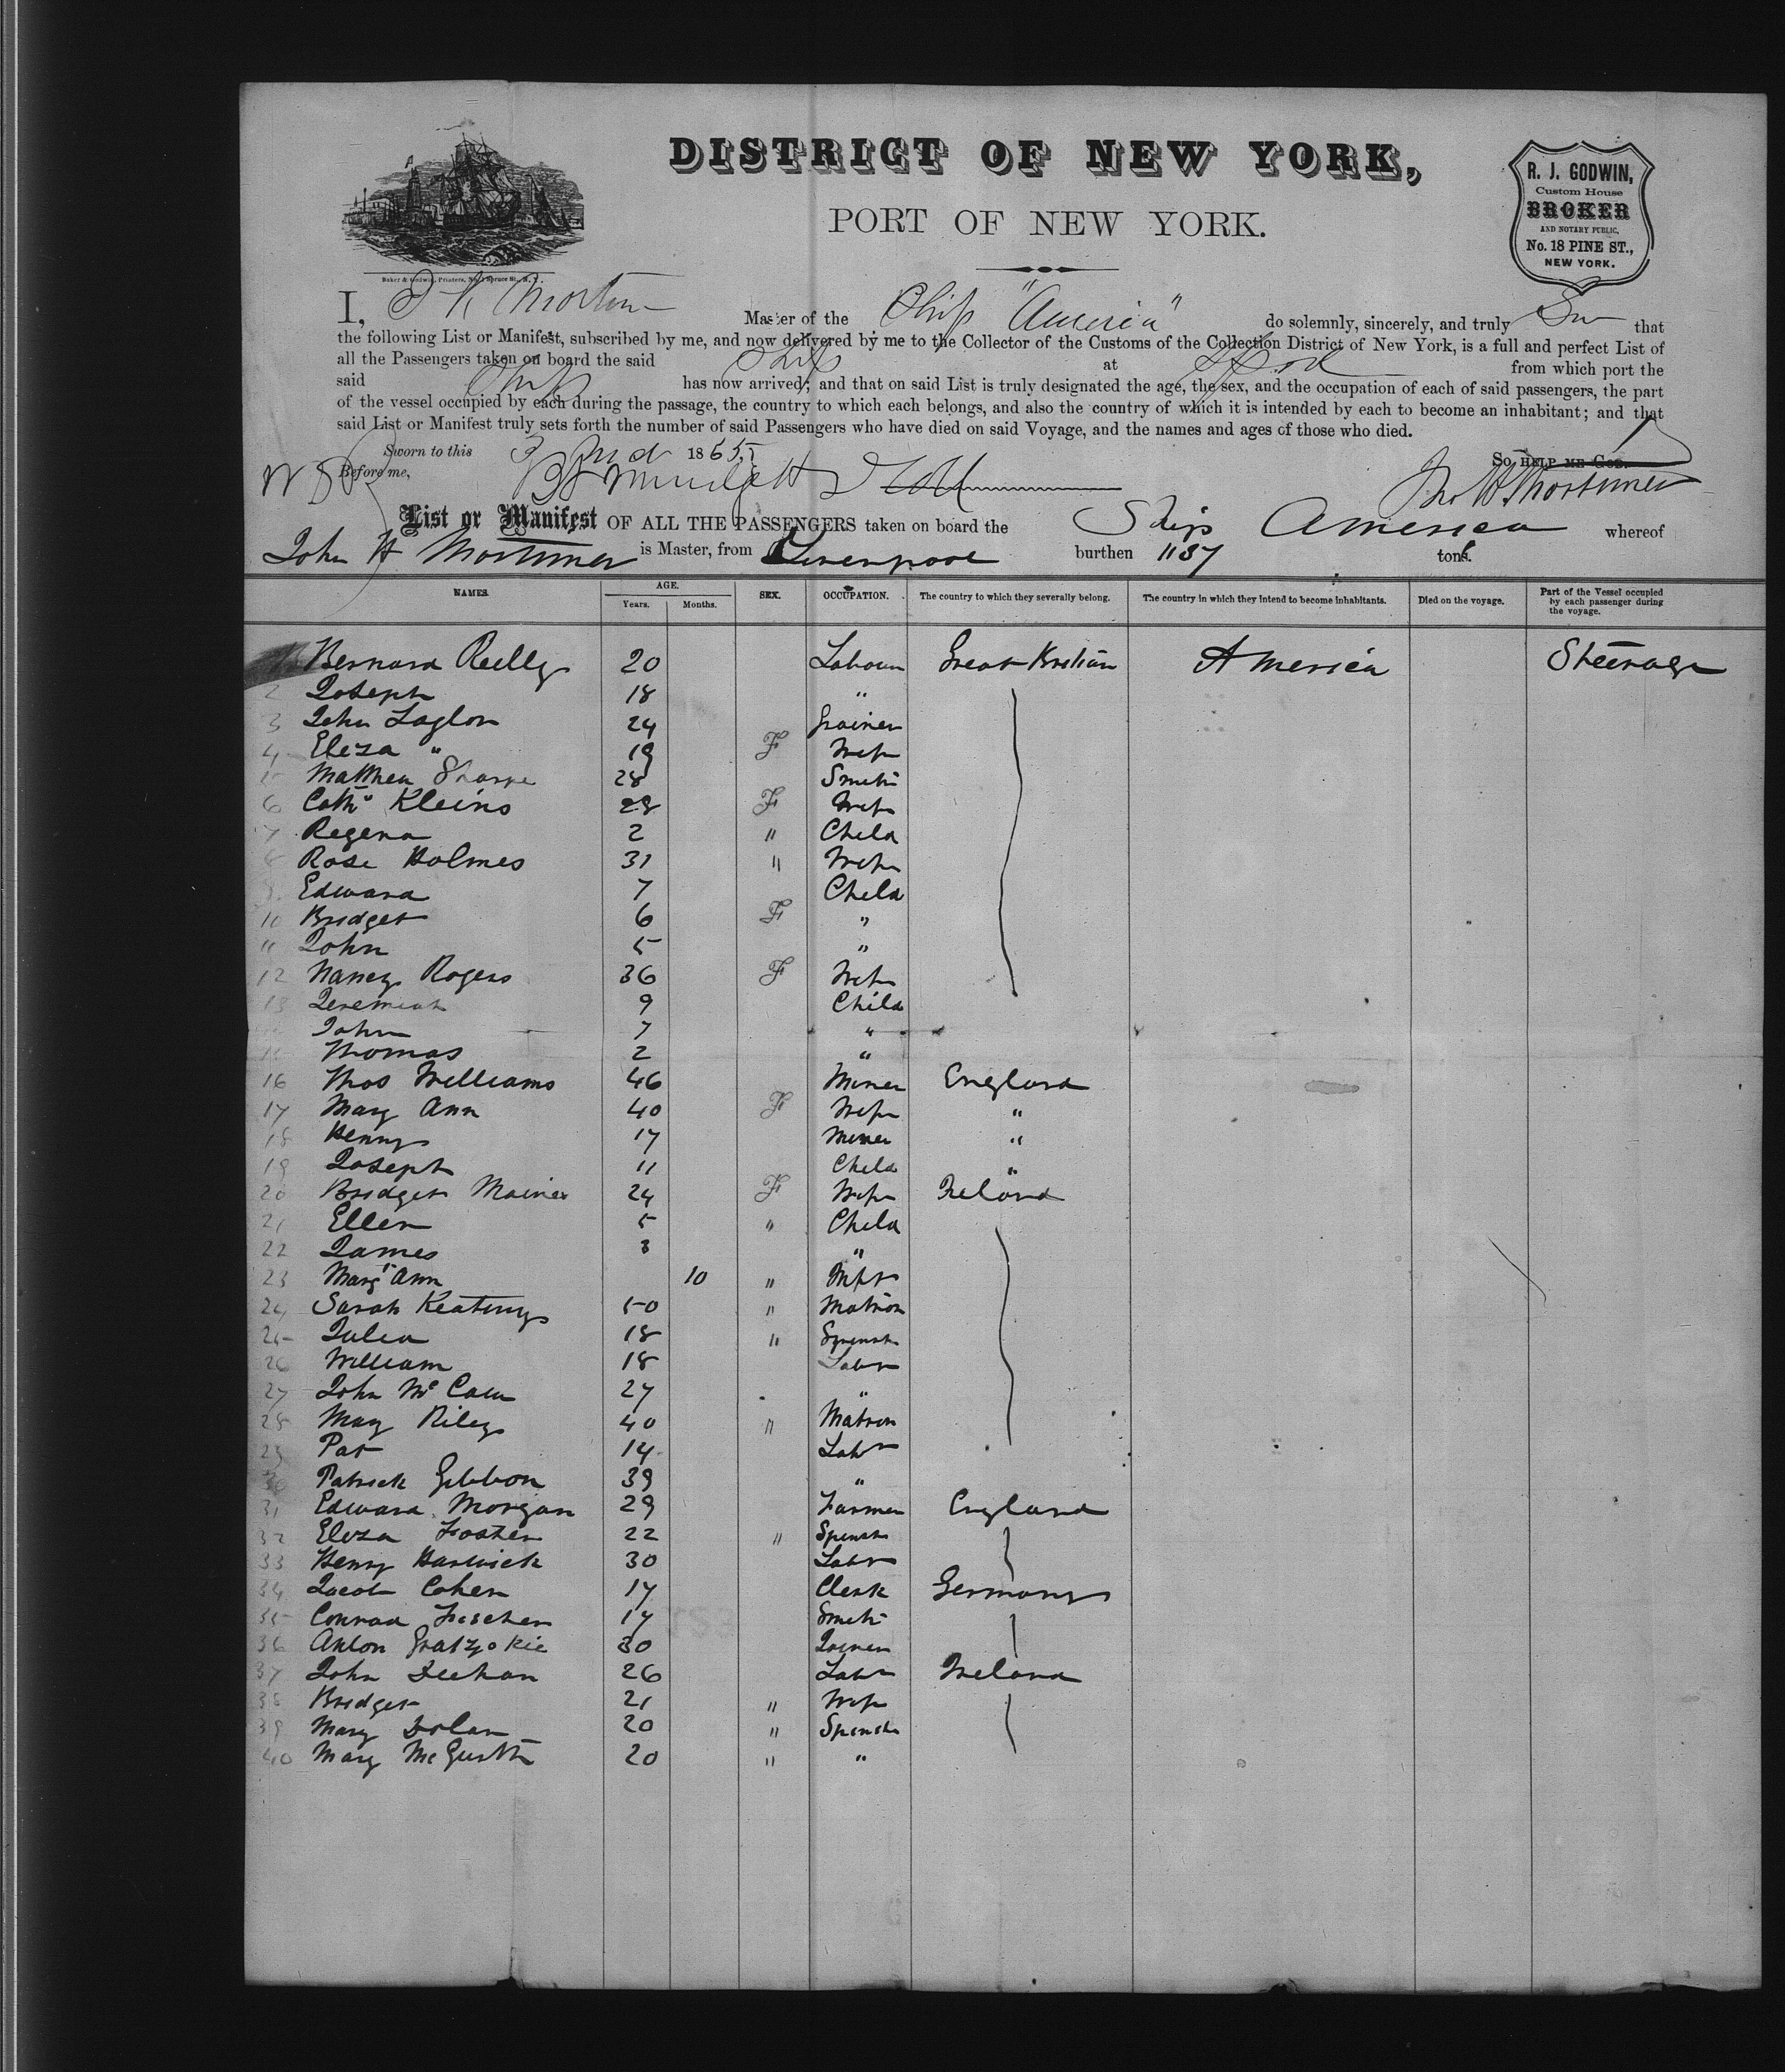 DISTRICT OF NEW YORK,
PORT OF NEW YORK.
R. J. GODWIN,
Custom House
BROKER
AND NOTARY PUBLIC,
No. 18 PINE ST.,
NEW YORK.
Baker & Godwin, Printers, No. 1 Spruce St., N. Y.
I, Master of the Ship "America" do solemnly, sincerely, and truly that
the following List or Manifest, subscribed by me, and now delivered by me to the Collector of the Customs of the Collection District of New York, is a full and perfect List of
all the Passengers taken on board the said Ship at Lpool from which port the
said Ship has now arrived; and that on said List is truly designated the age, the sex, and the occupation of each of said passengers, the part
of the vessel occupied by each during the passage, the country to which each belongs, and also the country of which it is intended by each to become an inhabitant; and that
said List or Manifest truly sets forth the number of said Passengers who have died on said Voyage, and the names and ages of those who died.
Sworn to this 1865 So HELP ME GOD.
Before me, Jno H Mortimer
List or Manifest OF ALL THE PASSENGERS taken on board the Ship America whereof
John H Mortimer is Master, from Liverpool burthen 1137 tons.
NAMES. AGE. SEX. OCCUPATION. The country to which they severally belong. The country in which they intend to become inhabitants. Died on the voyage. Part of the Vessel occupied by each passenger during the voyage.
Years. Months.
1 Bernard Reilly 20 Labour Great Britian America Steerage
2 Joseph 18 "
3 John 24
4 Eliza " 19 F Wife
5 Matthew Sharpe 28 Smith
6 Cathe Kleins 28 F Wife
7 Regena 2 " Child
8 Rose Holmes 31 " Wife
9 Edward 7 Child
10 Bridget 6 F "
11 John 5 "
12 Nancy Rogers 36 F Wife
13 Jeremiah 9 Child
14 John 7 "
15 Thomas 2 "
16 Thos Williams 46 Miner England
17 Mary Ann 40 F Wife "
18 Henry 17 Miner "
19 Joseph 11 Child "
20 Bridget 24 F Wife Ireland
21 Ellen 5 " Child
22 James 3 "
23 Mary Ann 10 " Inft
24 Sarah Keating 50 " Matron
25 Julia 18 " Spinst
26 William 18 Labr
27 John 27 "
28 Mary Riley 40 " Matron
29 Pat 14 Labr
30 Patrick Gibbon 39 "
31 Edward Morgan 29 Farmer England
32 Eliza Foster 22 " Spinst
33 Henry Harwick 30 Labr
34 Jacob Cohen 17 Clerk Germany
35 Conrad Fischer 17 Smith
36 Anton 30 Joiner
37 John Deehan 26 Labr Ireland
38 Bridget 21 " Wife
39 Mary Dolan 20 " Spinst
40 Mary 20 " "